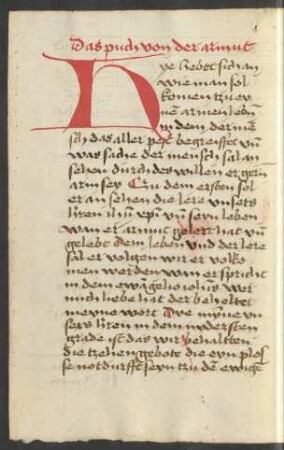 Das puch von der armut
Hye hebet sich an
wie man sol
komen tzu ey
nē armen lebñ
in dem der mē
sch das aller pest begreifft vñ
was sache der mensch sal an
sehen durch des willen er gern
arm sey Czu dem ersten sol
er an sehen die lere vnsers
h̄ren ihū xp̄i vñ seyn leben
wan er armut gelert hat vñ
gelebt dem leben vnd der lere
sal er volgen wil er volko
men werden wan er spricht
in dem ewāgelio ioh̄is wer
mich liebe hat der beheltet
meyne wort Dye mȳne vn
sers h̄ren in dem nydersten
grade ist das wir behalten
die tzehen gebote die eyn plos
se notdurfft seyn tzu dē ewigē